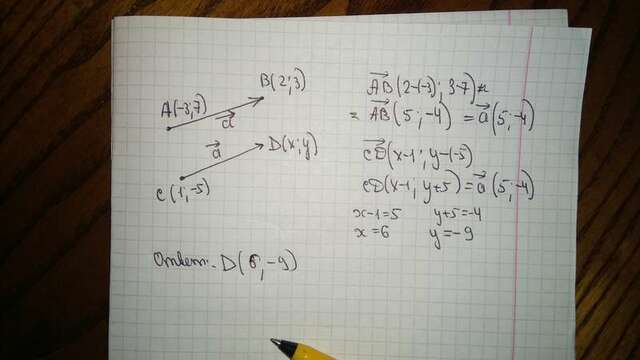 B(2;3)
A(-3,7)
a⃗
a⃗
D(x;y)
C(1,-5)
A⃗B⃗(2-(-3); 3-7)=
= A⃗B⃗(5;-4) = a⃗(5;-4)
C⃗D⃗(x-1; y-(-5)
C⃗D⃗(x-1, y+5) = a⃗(5;-4)
x-1=5 y+5=-4
x=6 y=-9
Ответ: D(6,-9)